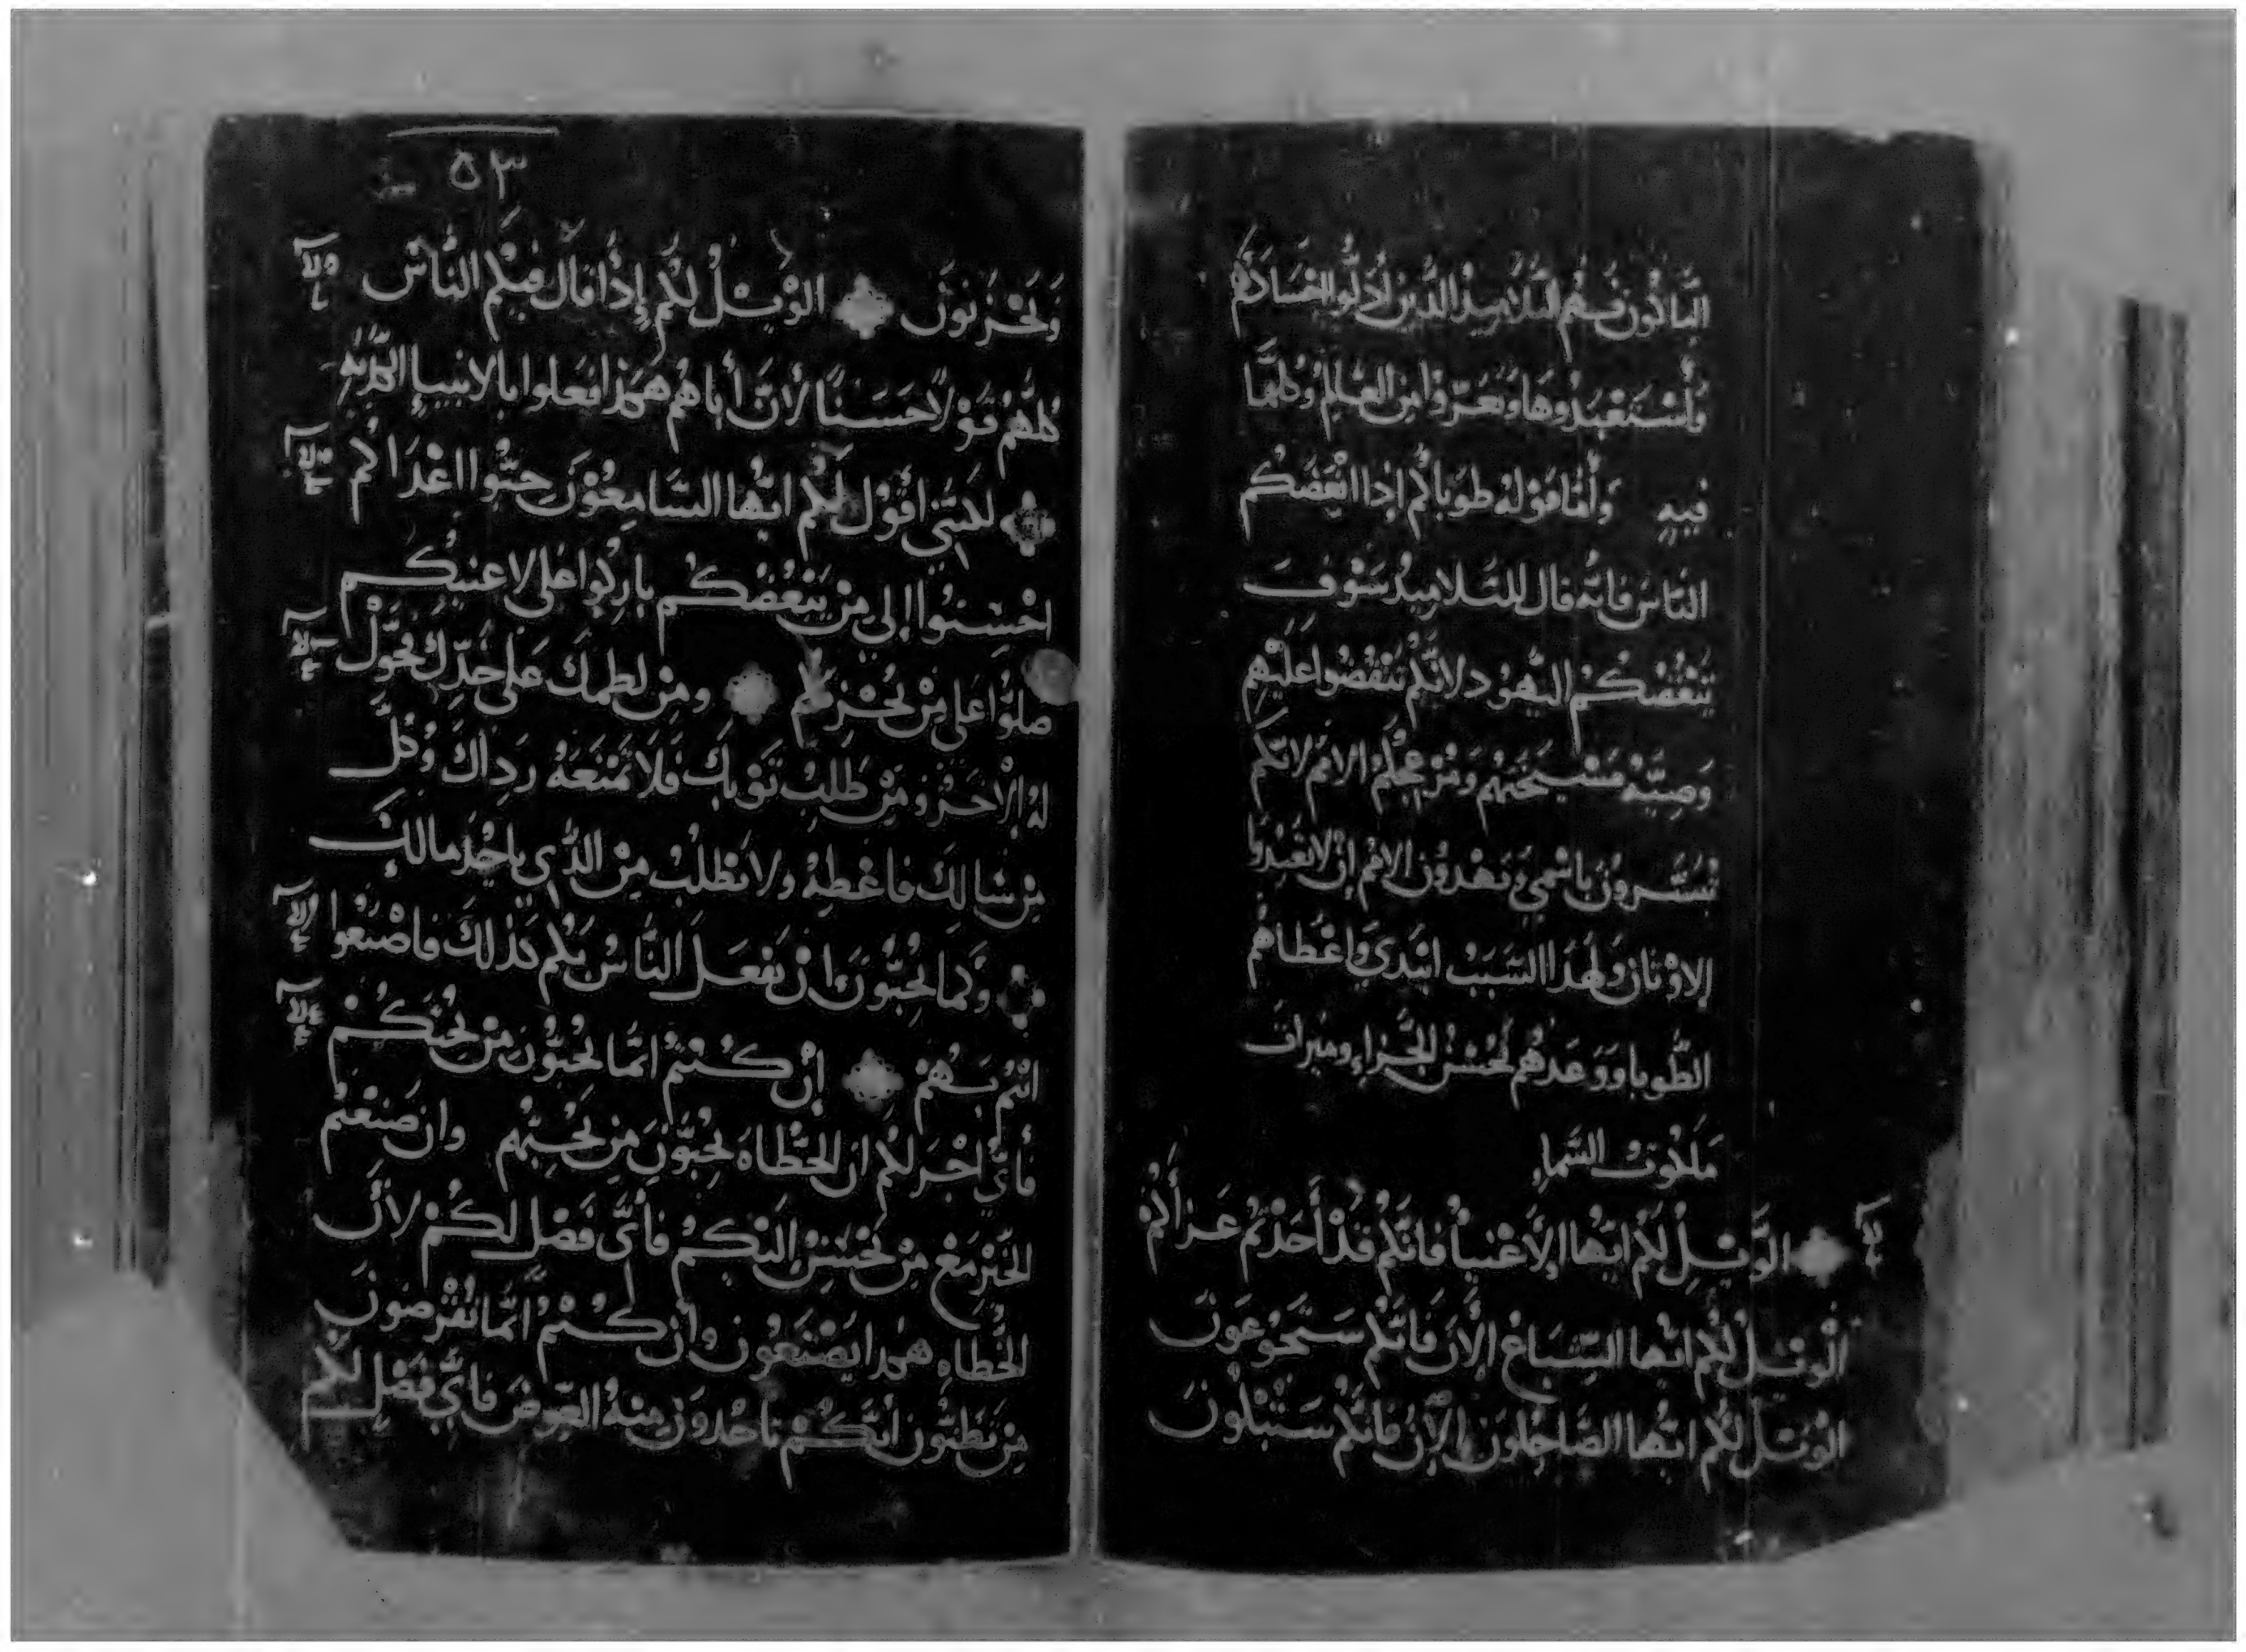 الباكون فهم التلاميذ الذين ادلوا اجسادهم
واستعبدوها وتعروا من العالم وكلما
فيه وأما قوله طوباكم إذا ابغضكم
الناس فانه قال للتلاميذ سوف
يبغضكم اليهود لانكم تنقضوا عليهم
وصيّة مشيختهم ومن الامم لانكم
تبشرون باسمي وتهدون الامم ان لا يعبدوا
الاوثان ولهذا السبب ابتدي واعطاهم
الطوبا ووعدهم بحسن الجزاء وميراث
ملكوت السماء
الويل لكم ايها الاغنياء فانكم قد أخذتم عزاكم
الويل لكم ايها الشباع الان فانكم ستجوعون
الويل لكم ايها الضاحكون الان فانكم ستبكون
٥٣
وتحزنون الويل لكم إذا قال فيكم الناس
كلهم قولا حسنا لأن أباهم هكذا فعلوا بالانبيا الكذبه
لكنني اقول لكم ايها السامعون حبوا اعداكم
احسنوا إلى من يبغضكم باركوا على لاعنيكم
صلوا على من يحزنكم ومن لطمك على خدك فحول
له الاخر ومن طلب ثوبك فلا تمنعه رداك وكل
من سالك فاعطه ولا تطلب من الذي ياخذ مالك
وكما تحبون ان يفعل الناس بكم كذلك فاصنعوا
انتم بهم إن كنتم انما تحبون من يحبكم
فأي اجر لكم ان الخطاه يحبون من يحبهم وان صنعتم
الخير مع من يحسن اليكم فأي فضل لكم لأن
الخطاه هكذا يصنعون وان كنتم انما تقرضون
من تظنون أنكم تاخذون منه العوض فاي فضل لكم